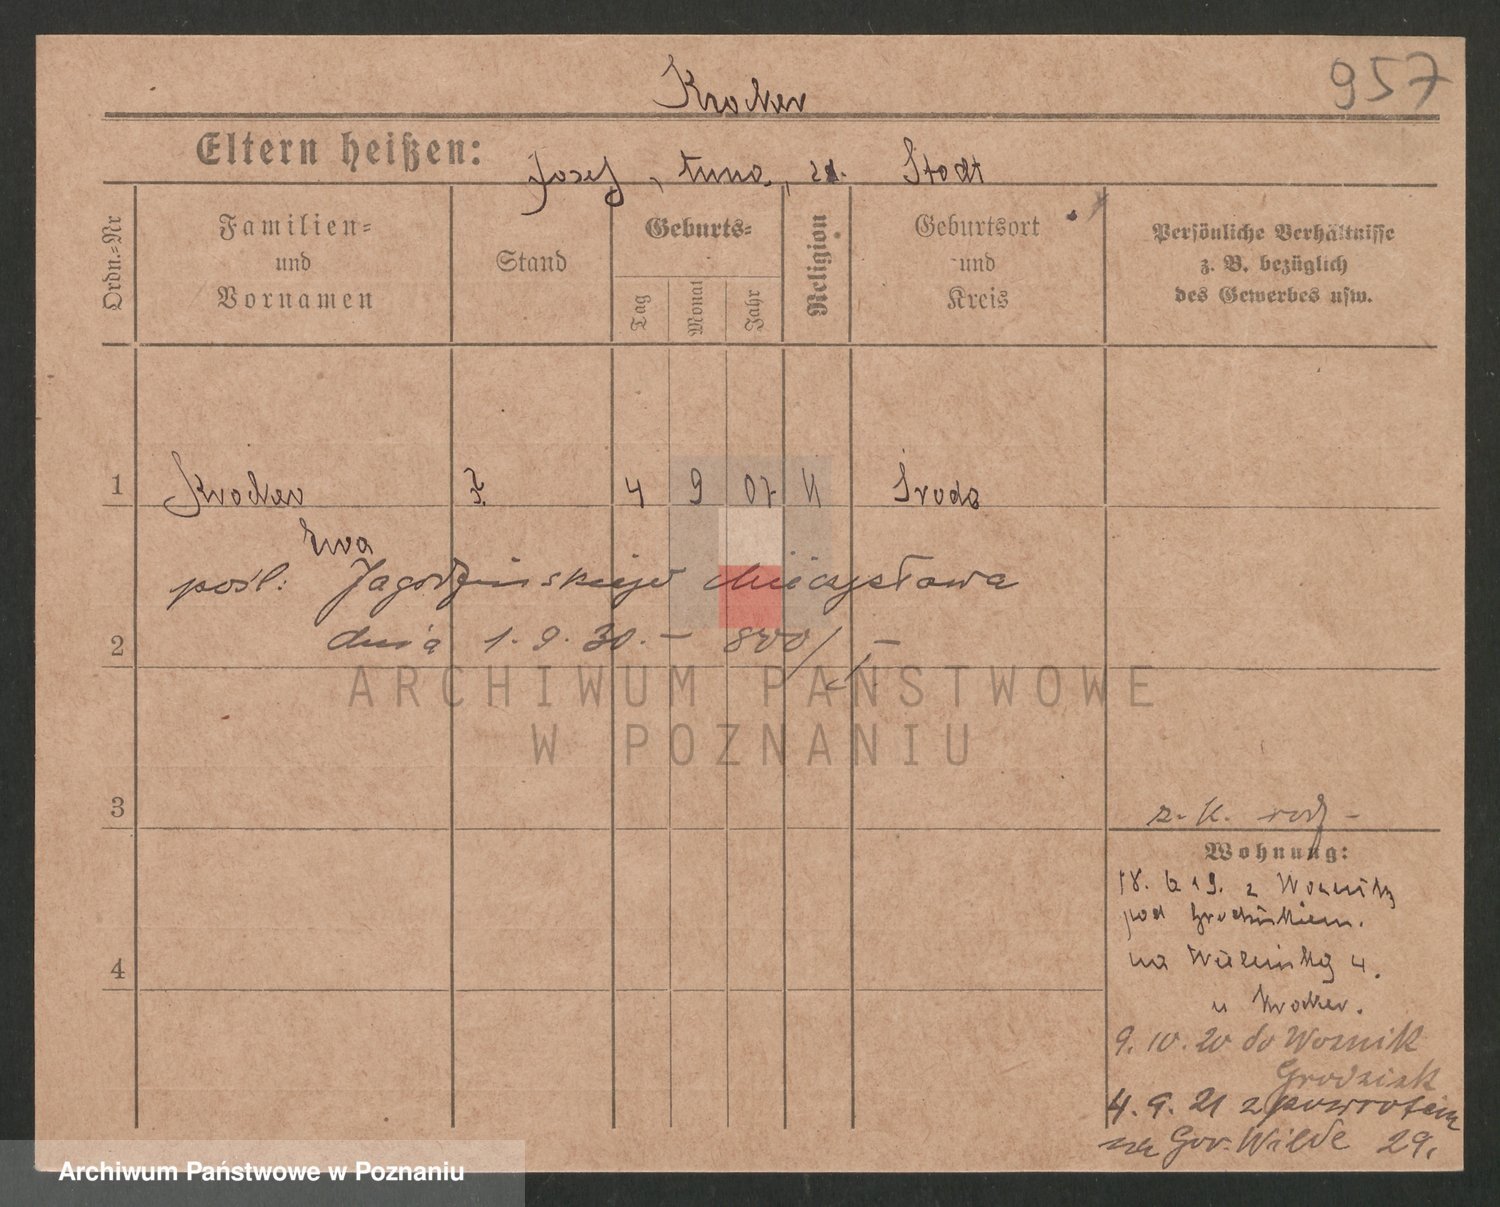 957
Krocker
Eltern heißen: Josef, Anna, zd. Stodt
Ordn.-Nr
Familien-
und
Vornamen
Stand
Geburts-
Tag
Monat
Jahr
Religion
Geburtsort
und
Kreis
Persönliche Verhältnisse
z. B. bezüglich
des Gewerbes usw.
1 Krocker 4 9 07 K Sroda
Ewa
pośl: Jagodzińskiego Mieczysława
2 dnia 1.9.30.- 800/
ARCHIWUM PAŃSTWOWE
W POZNANIU
3
z. K. rodz -
Wohnung:
18. 6 19. z Woznik
pod Grodziskiem.
4
na 4.
u Krocker.
9. 10. 20 do Woznik
Grodzisk
4. 9. 21 z powrotem
na Gór. Wilde 29.
Archiwum Państwowe w Poznaniu